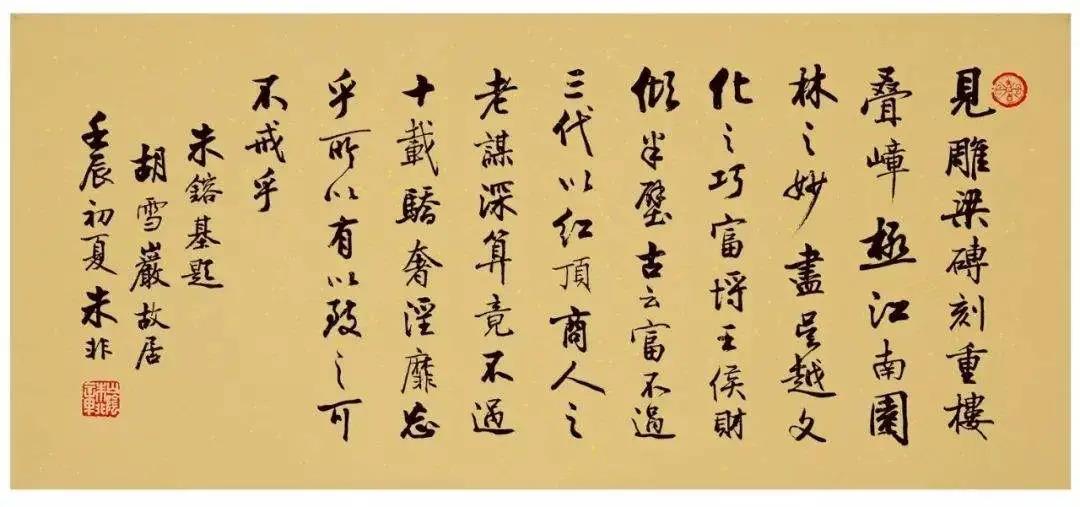 見雕梁磚刻重樓
疊嶂極江南園
林之妙盡吳越文
化之巧富埒王侯財
傾半壁古云富不過
三代以紅頂商人之
老謀深算竟不過
十載驕奢淫靡忘
乎所以有以致之可
不戒乎
朱鎔基題
胡雪巖故居
壬辰初夏朱非